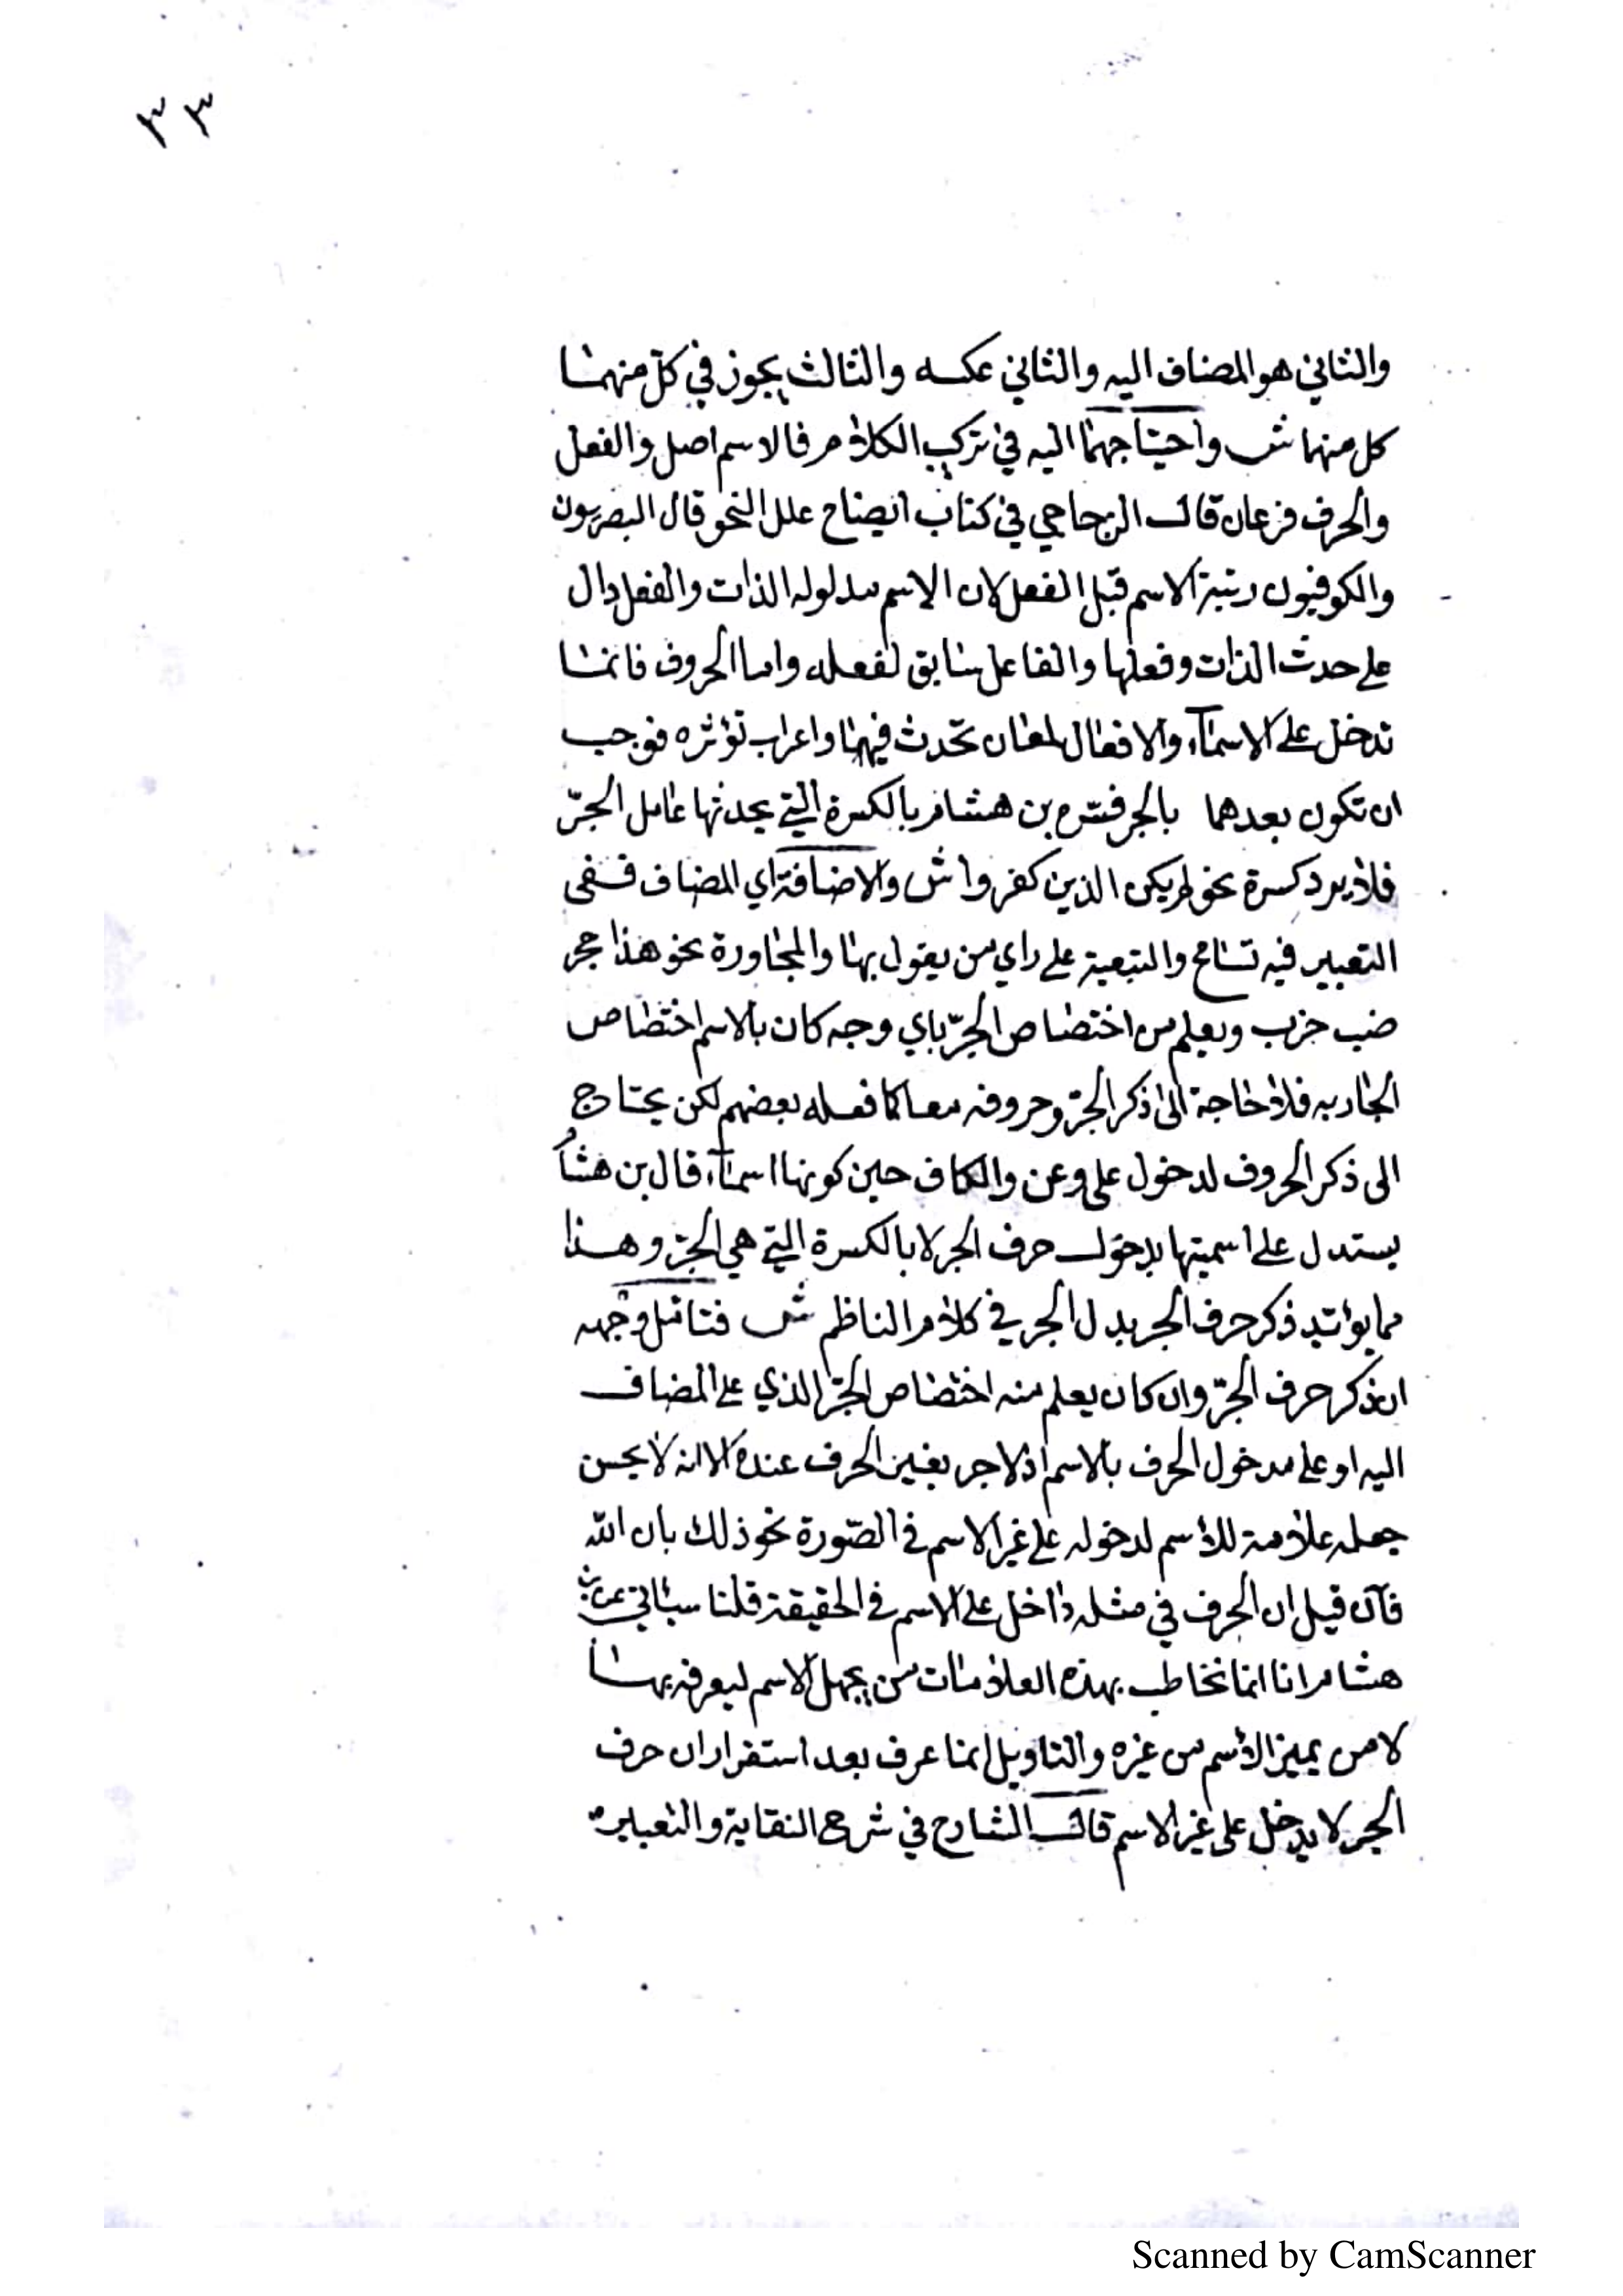 ٣٣
والثاني هو المضاف اليه والثاني عكسه والثالث يجوز في كلّ منهما
كل منهما ش واحتياجهما اليه في تركيب الكلام فالاسم اصل والفعل
والحرف فرعان قال الزجاجي في كتاب ايضاح علل النحو قال البصريون
والكوفيون رتبة الاسم قبل الفعل لان الاسم مدلوله الذات والفعل دال
على حدث الذات وفعلها والفاعل سابق لفعله واما الحروف فانما
تدخل على الاسماء والافعال لمعان تحدث فيهما واعراب تؤثره فوجب
ان تكون بعدهما بالجر فسّره بن هشام بالكسرة التي يحدثها عامل الجرّ
فلا يرد كسرة نحو لم يكن الذين كفروا ش والاضافة اي المضاف ففى
التعبير فيه تسامح والتبعية على راي من يقول بها والمجاورة نحو هذا جحر
ضب خرب ويعلم من اختصاص الجرّ باي وجه كان بالاسم اختصاص
الجار به فلا حاجة الى ذكر الجرّ وحروفه معا كما فعله بعضهم لكن يحتاج
الى ذكر الحروف لدخول على وعن والكاف حين كونها اسماء قال بن هشام
يستدل على اسميتها بدخول حرف الجر لا بالكسرة التي هي الجرّ وهذا
مما يؤيد ذكر حرف الجر بدل الجر في كلام الناظم ش فتامّل وجهه
ان ذكر حرف الجرّ وان كان يعلم منه اختصاص الجرّ الذي على المضاف
اليه او على مدخول الحرف بالاسم اذ لا جر بغير الحرف عنده الا انه لا يحسن
جعله علامة للاسم لدخوله على غير الاسم في الصّورة نحو ذلك بان الله
فان قيل ان الحرف في مثله داخل على الاسم في الحقيقة قلنا سياتي عن بن
هشام انا انما نخاطب بهذه العلامات من يجهل الاسم ليعرفه بها
لا من يميز الاسم من غيره والتاويل انما عرف بعد استقرار ان حرف
الجر لا يدخل على غير الاسم قال الشارح في شرح النقاية والتعبير
Scanned by CamScanner